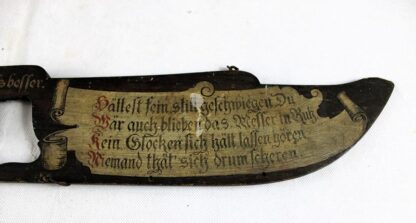 sbesser.
Hättest fein still geschwiegen Du
Wär auch blieben das Messer in Ruh
Kein Glocken sich hätt lassen hören
Niemand thät sich drum scheren.